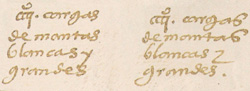 cargas
de mantas
blancas y
grandes
cargas
de mantas
blancas y
grandes.